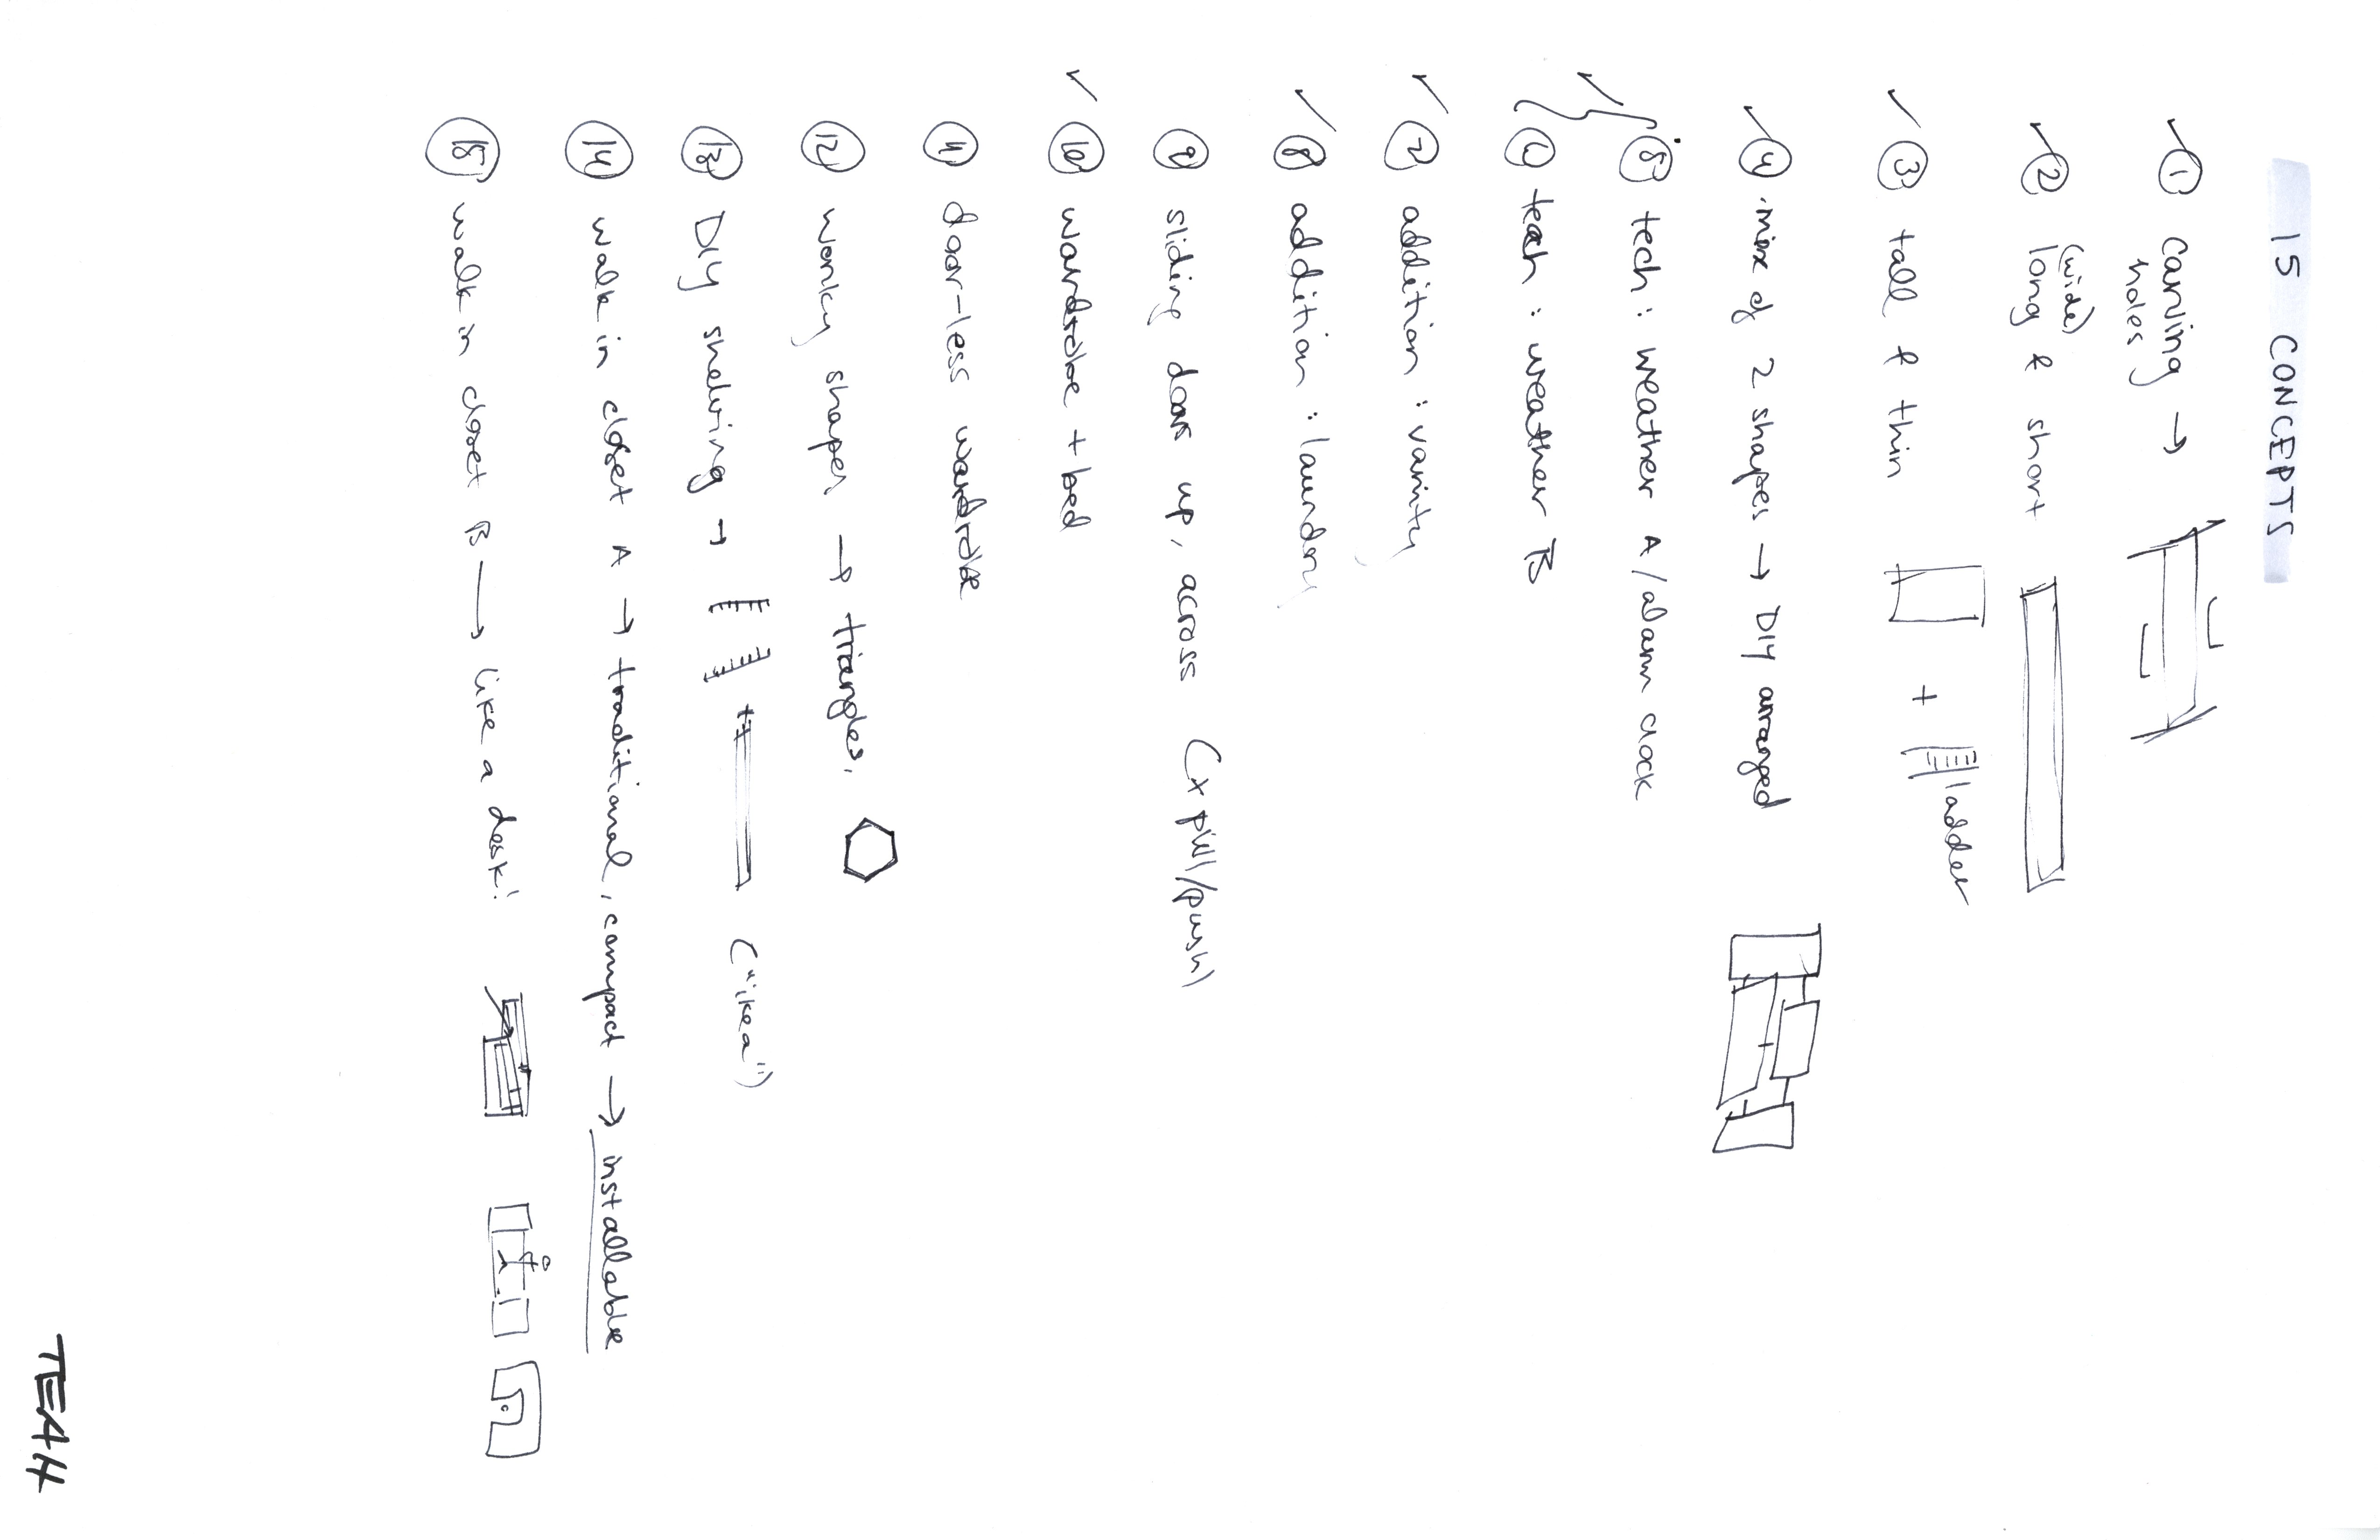 15 CONCEPTS
✓ ① carving → holes
✓ ② long & short
(wide)
✓ ③ tall & thin + ladder
✓ ④ mix of 2 shapes → DIY arranged
✓ ⑤ tech: weather A / alarm clock
⑥ tech: weather B
✓ ⑦ addition: vanity
✓ ⑧ addition: laundry
⑨ sliding door up, across (x pull/push)
✓ ⑩ wardrobe + bed
⑪ door-less wardrobe
⑫ wonky shapes → triangles,
⑬ DIY shelving → ("ikea")
⑭ walk in closet A → traditional, compact → installable
⑮ walk in closet B → like a desk!
TEAH